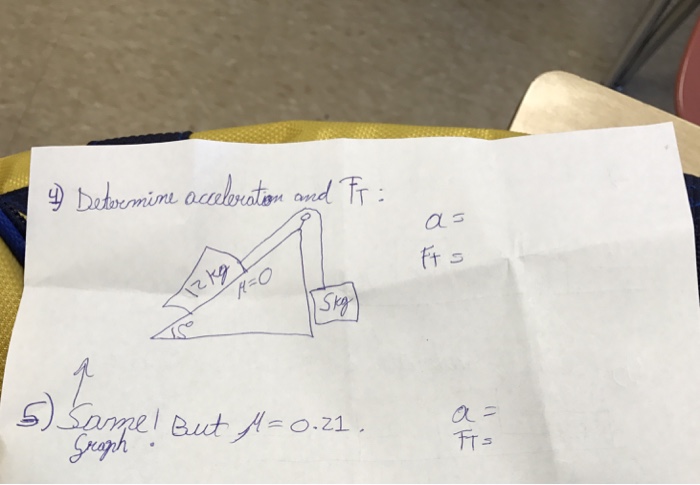 4) Determine acceleration and FT :
a =
FT =
12 kg
μ=0
5kg
5) Same! But μ = 0.21.
Graph.
a =
FT =